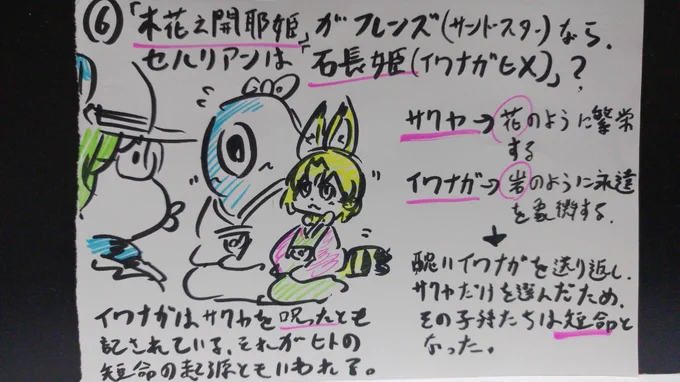 ⑥「木花之開耶姫」がフレンズ(サンドスター)なら、
セルリアンは「石長姫(イワナガヒメ)」?
サクヤ→花のように繁栄
する
イワナガ→岩のように永遠
を象徴する。
↓
醜いイワナガを送り返し、
サクヤだけを選んだため、
その子孫たちは短命と
なった。
イワナガはサクヤを呪ったとも
記されている、それがヒトの
短命の起源ともいわれてる。